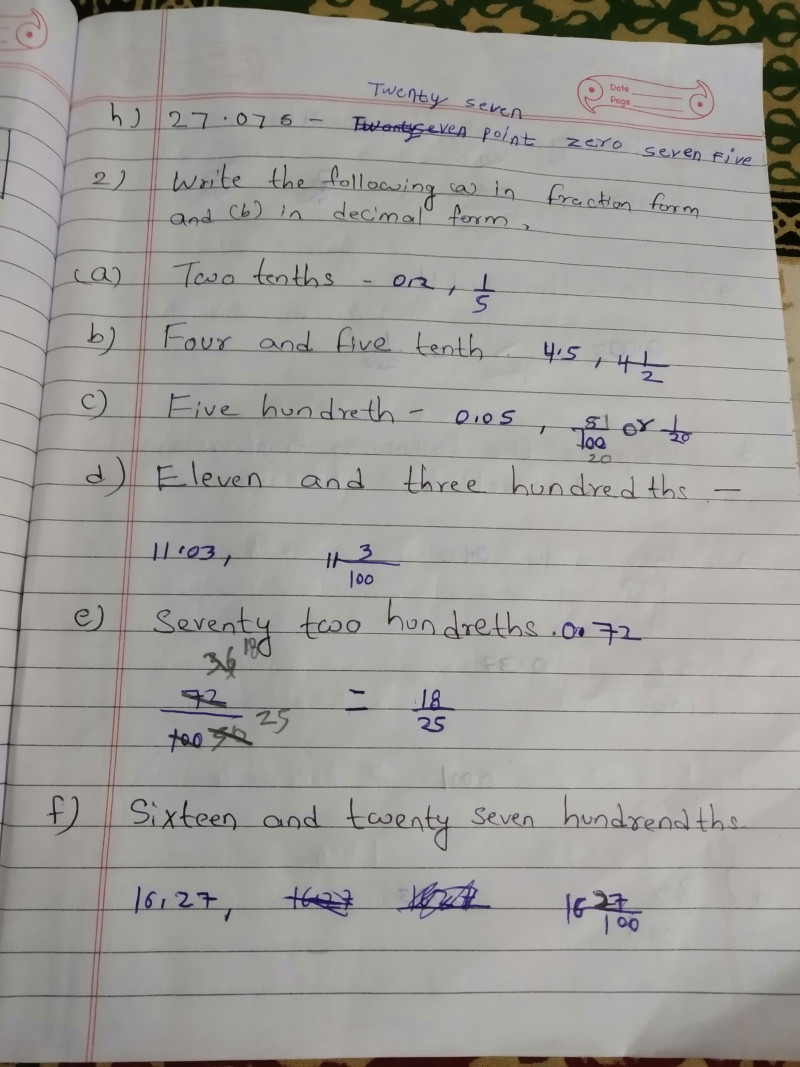 Date
Page
Twenty seven
h) 27.075 - Twentyseven point zero seven Five
2) Write the following (a) in fraction form
and (b) in decimal form,
(a) Two tenths - 0.2, 1/5
b) Four and five tenth 4.5, 4 1/2
c) Five hundreth - 0.05, 5/100 1 20 or 1/20
d) Eleven and three hundredths -
11.03, 11 3/100
e) Seventy two hundreths. 0.72
36 18
72/100 50 25 = 18/25
f) Sixteen and twenty seven hundrendths
16.27, 16 27/100